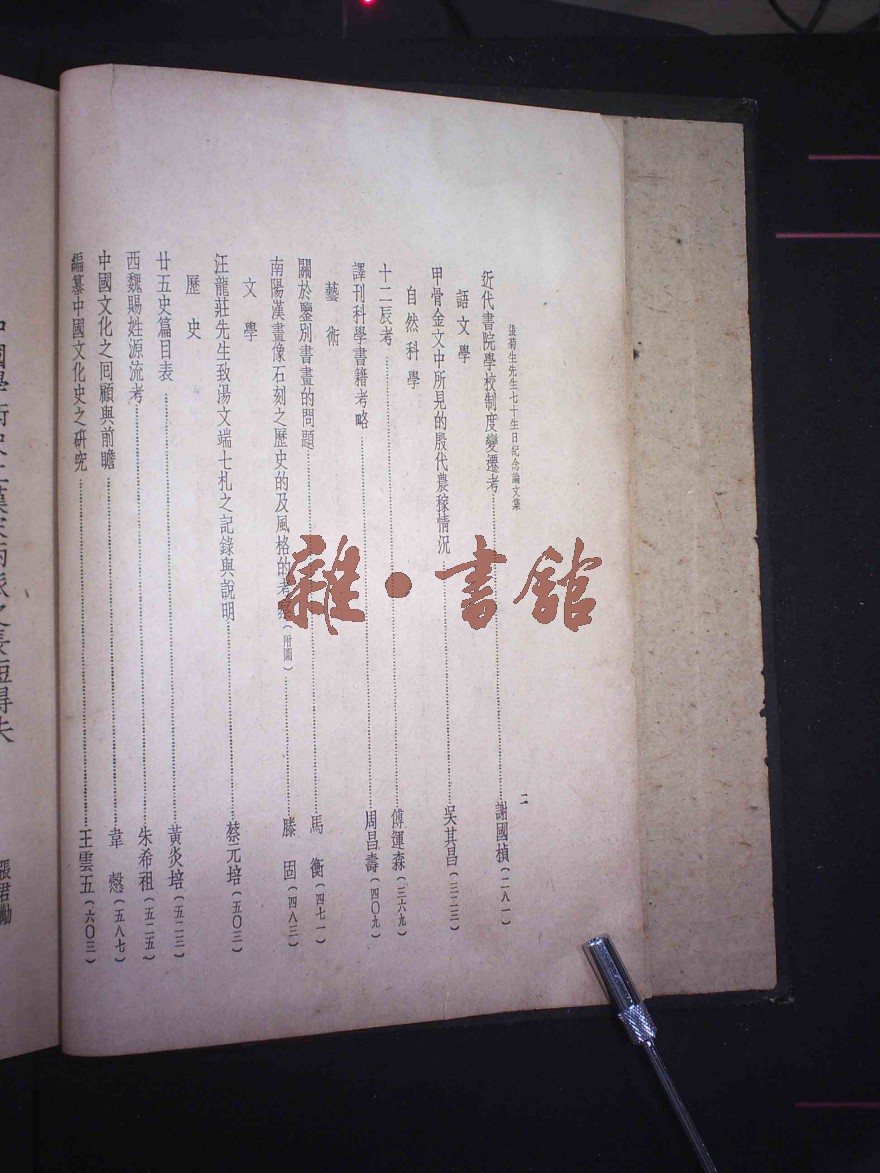 張菊生先生七十生日紀念論文集
二
近代書院學校制度變遷考……謝國楨(二八一)
語文學
甲骨金文中所見的殷代農稼情況……吳其昌(三二三)
自然科學
十二辰考……傅運森(三六九)
譯刊科學書籍考略……周昌壽(四〇九)
藝術
關於鑒別書畫的問題……馬衡(四七一)
南陽漢畫像石刻之歷史的及風格的考察(附圖)……滕固(四八三)
文學
汪龍莊先生致湯文端七札之記錄與說明……蔡元培(五〇三)
歷史
廿五史篇目表……黃炎培(五二三)
西魏賜姓源流考……朱希祖(五二五)
中國文化之回顧與前瞻……韋慤(五八七)
編纂中國文化史之研究……王雲五(六〇三)
中國學術史上漢宋兩派之長短得失
張君勱
雜·書館